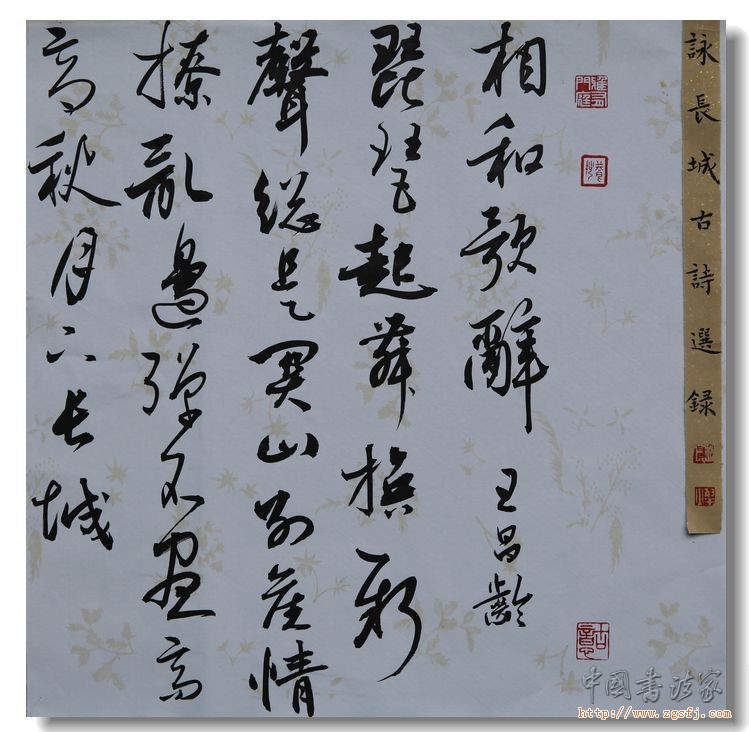 詠長城古詩選録
相和歌辭 王昌齡
琵琶起舞換新
聲総是関山別離情
撩亂邊弹不盡高
高秋月下長城
中国書法家
http://www.zgsfj.com